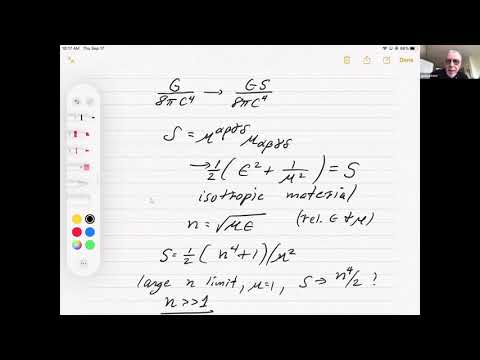 10:17 AM Thu Sep 17
66%
Done
G/8πc⁴ → GS/8πc⁴
S = μ^αβγδ μ_αβγδ
→ 1/2 (ε² + 1/μ²) = S
isotropic material
n = √με (rel. ε & μ)
S = 1/2 (n⁴+1)/μ²
large n limit, μ=1, S → n⁴/2 ?
n >> 1